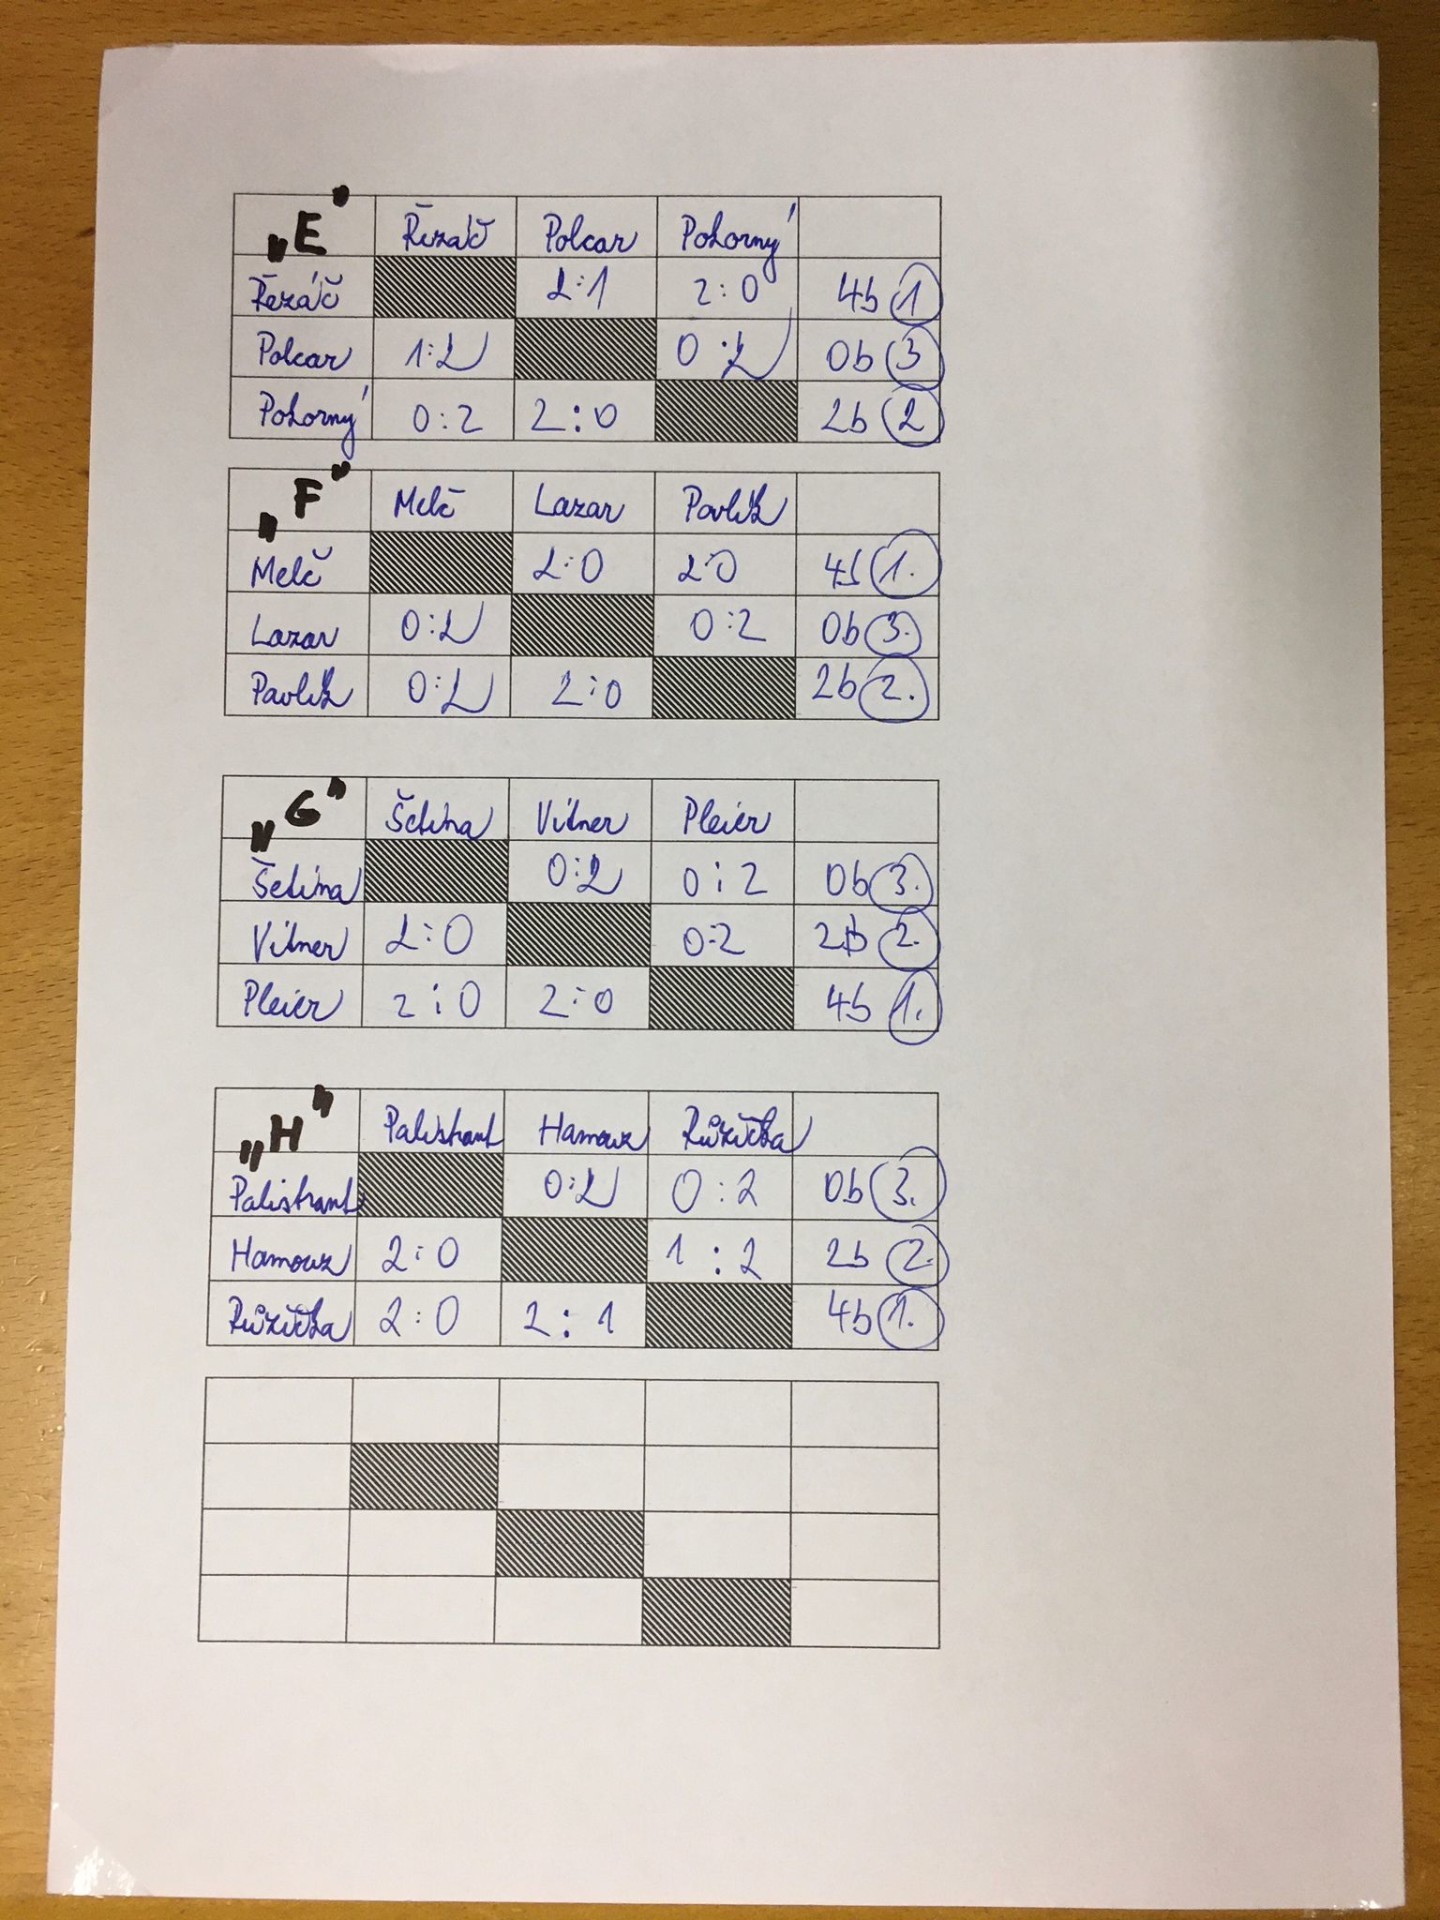 „E" Řezáč Polcar Pokorný
Řezáč 2:1 2:0 4b 1
Polcar 1:2 0:2 0b 3
Pokorný 0:2 2:0 2b 2
„F" Melč Lazar Pavlík
Melč 2:0 2:0 4b 1.
Lazar 0:2 0:2 0b 3.
Pavlík 0:2 2:0 2b 2.
„G" Šetina Vitner Pleier
Šetina 0:2 0:2 0b 3.
Vitner 2:0 0:2 2b 2.
Pleier 2:0 2:0 4b 1.
„H" Palistrant Hamouz Růžička
Palistrant 0:2 0:2 0b 3.
Hamouz 2:0 1:2 2b 2.
Růžička 2:0 2:1 4b 1.